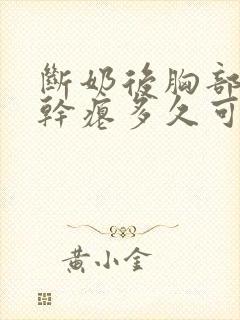 斷奶後胸部
幹癟多久可
黃小金